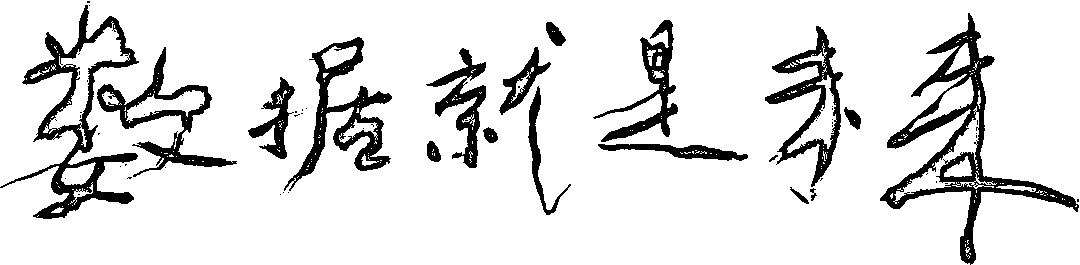 数据就是未来